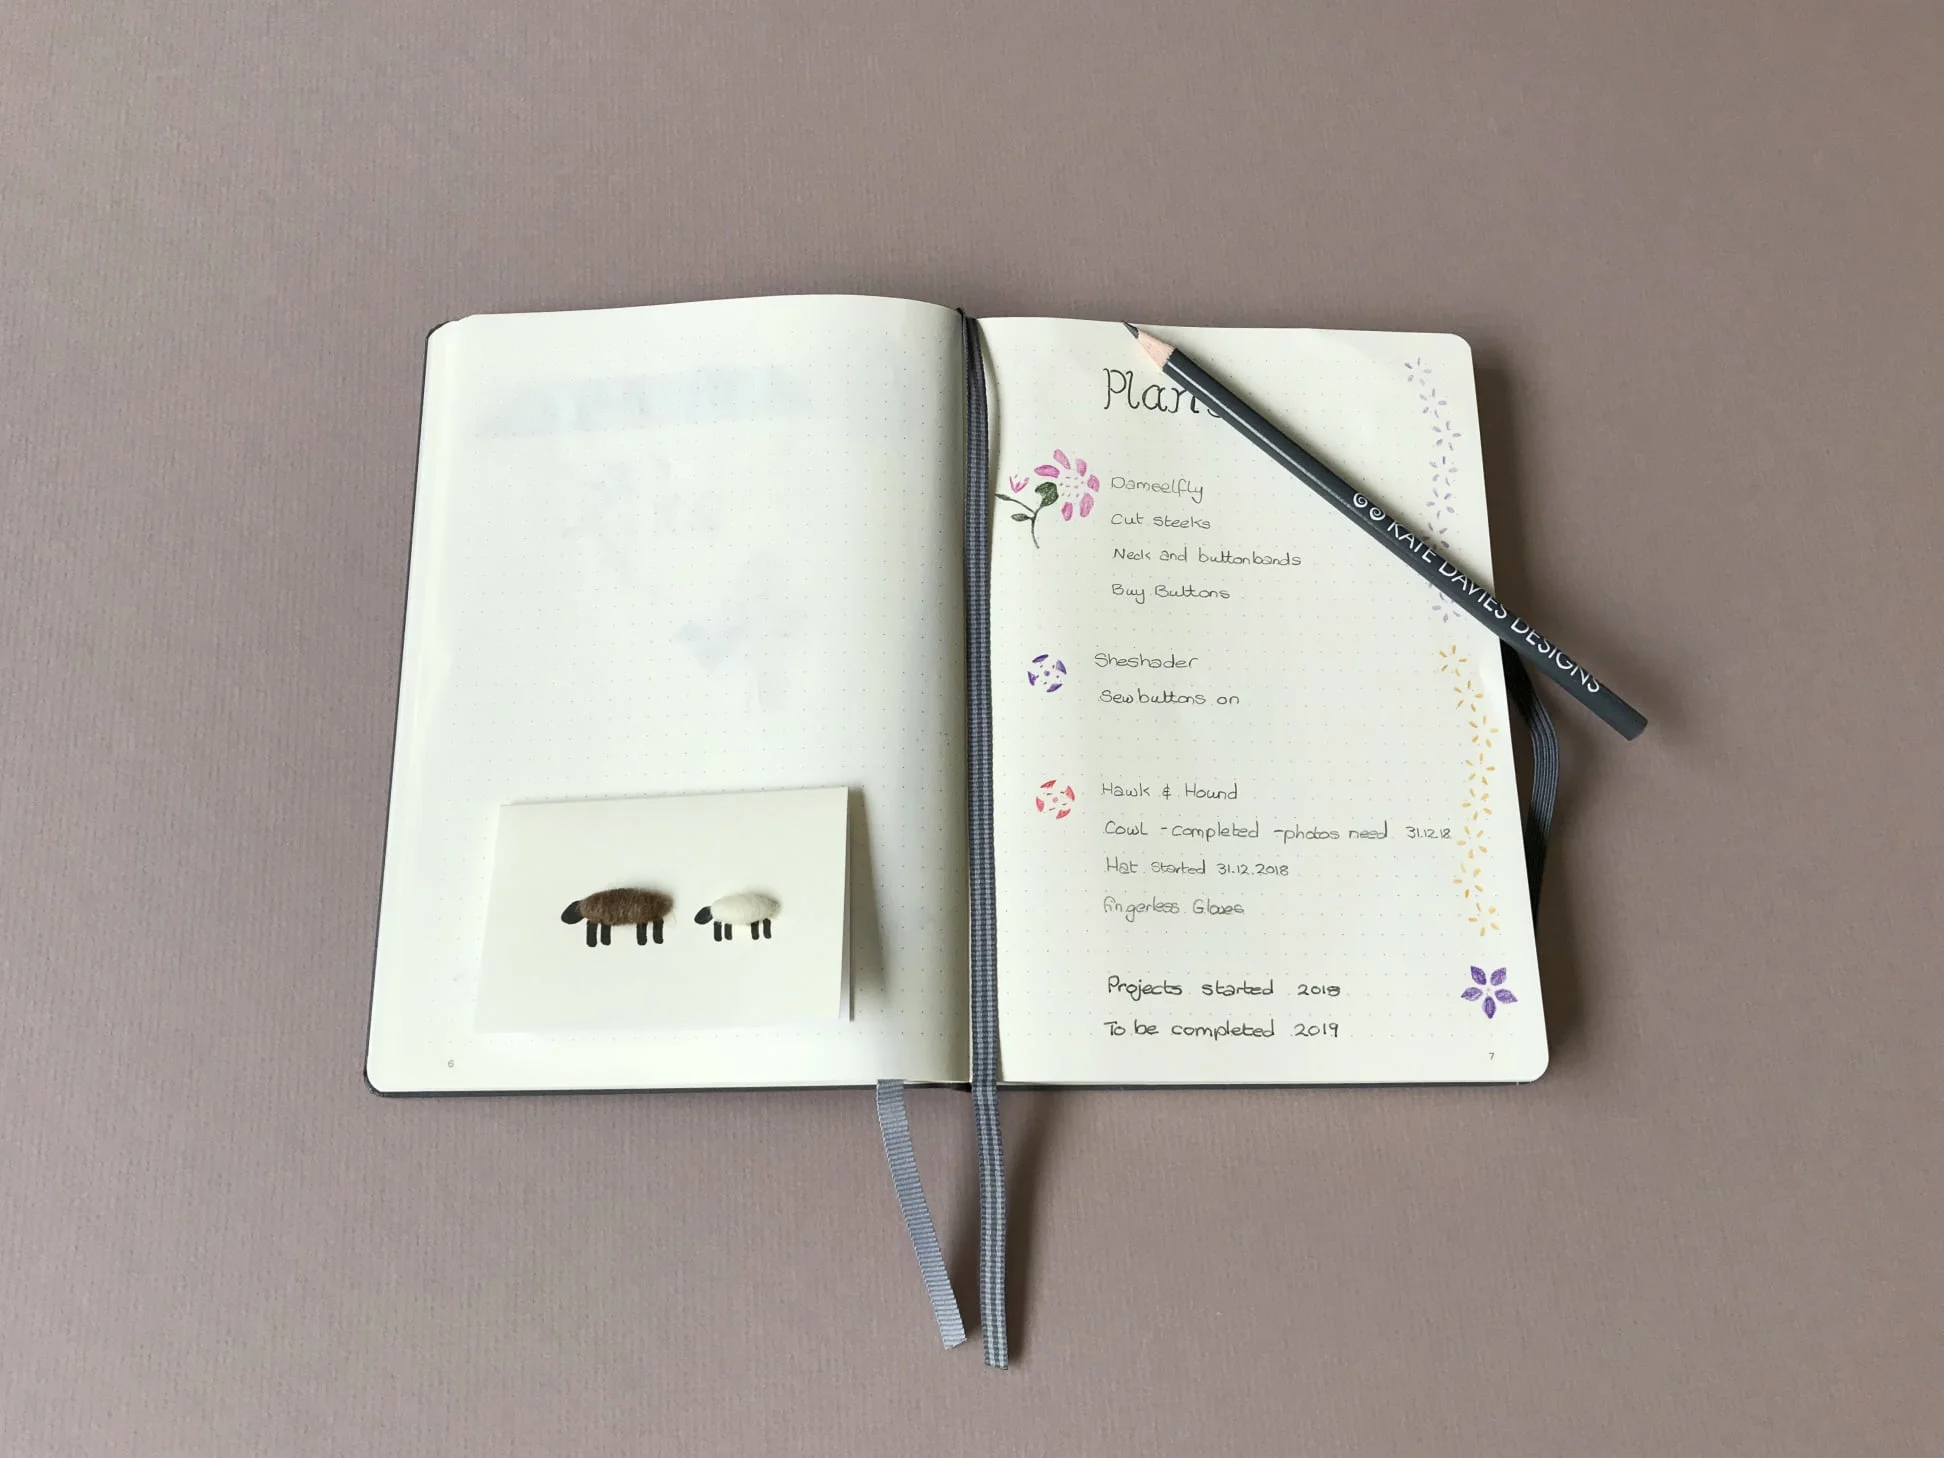 Plans
Dameelfly
Cut steeks
Neck and buttonbands
Buy Buttons
Sheshader
Sew buttons on
Hawk & Hound
Cowl - completed - photos need 31.12.18
Hat started 31.12.2018
fingerless Gloves
Projects started 2018
To be completed 2019
6
7
KATE DAVIES DESIGNS